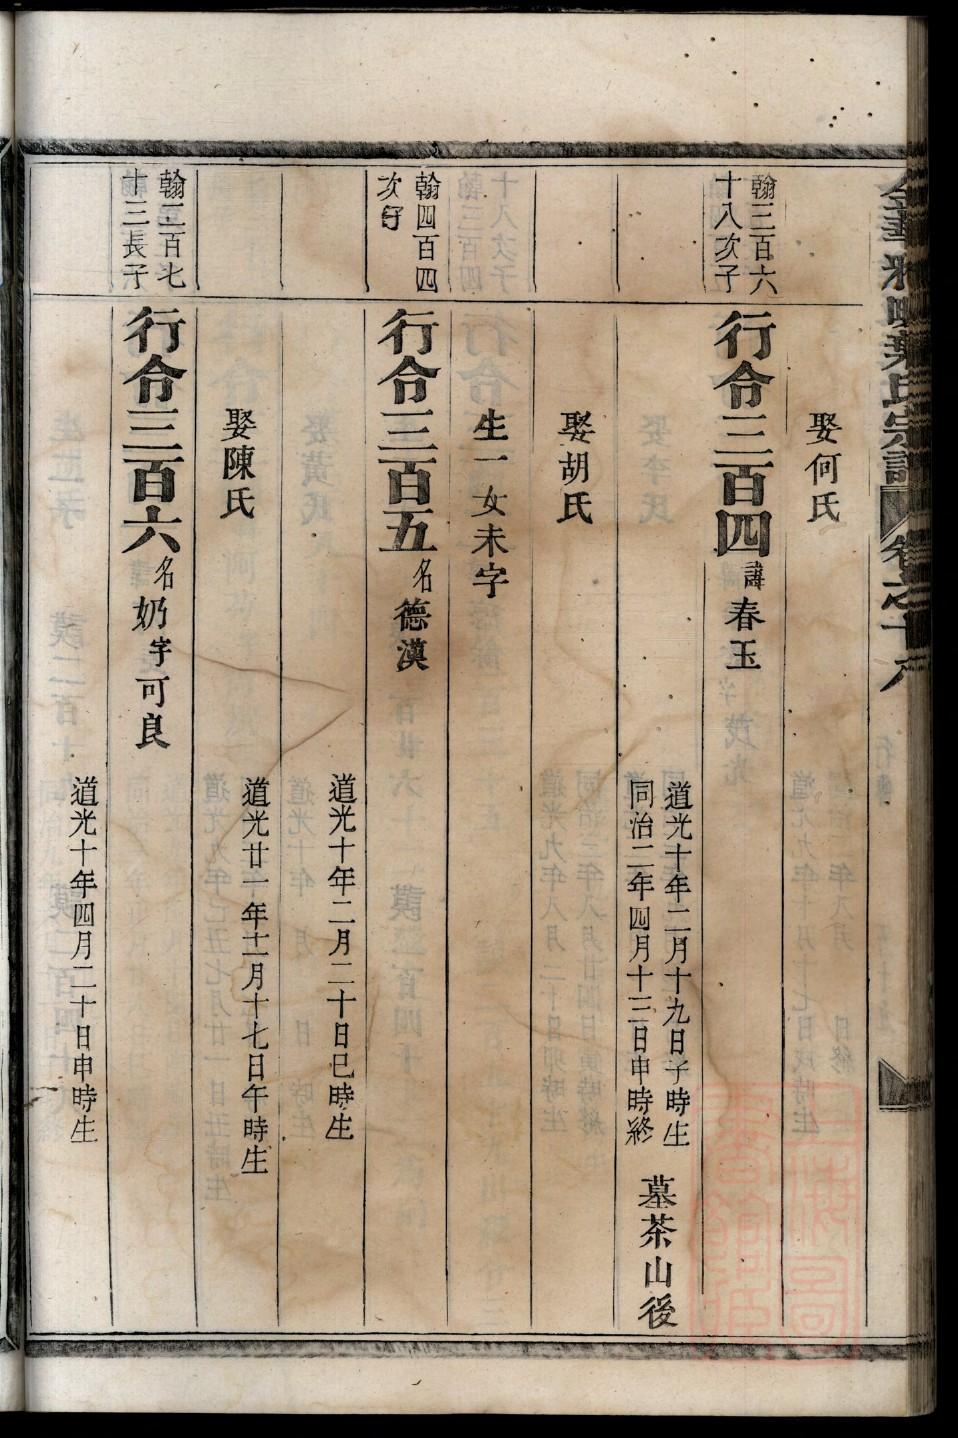 娶何氏
翰三百六
十八次子
行令三百四 諱春玉
道光十年二月十九日子時生
同治二年四月十三日申時終
墓茶山後
娶胡氏
生一女未字
翰四百四
次子
行令三百五 名德漢
道光十年二月二十日巳時生
娶陳氏
道光廿一年十一月十七日午時生
翰三百七
十三長子
行令三百六 名奶字可良
道光十年四月二十日申時生